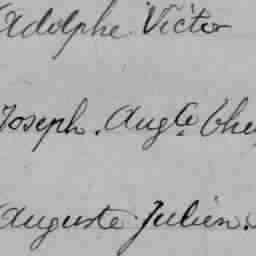 Adolphe Victor
Joseph. Augte Che
Auguste Julien.